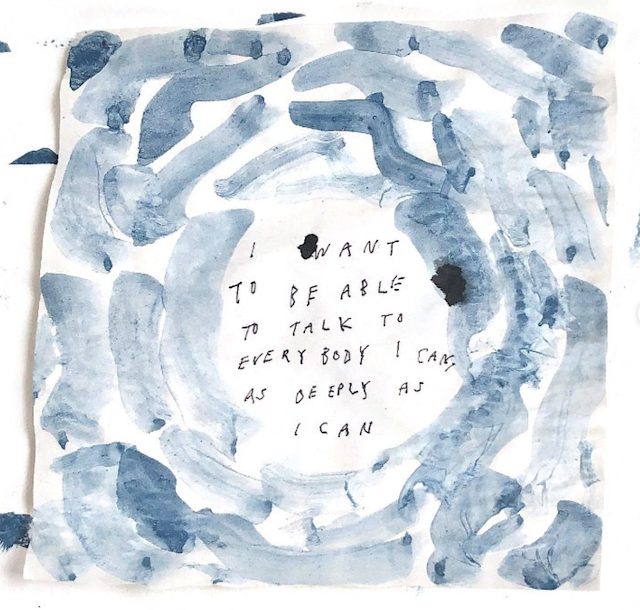 I WANT
TO BE ABLE
TO TALK TO
EVERYBODY I CAN,
AS DEEPLY AS
I CAN